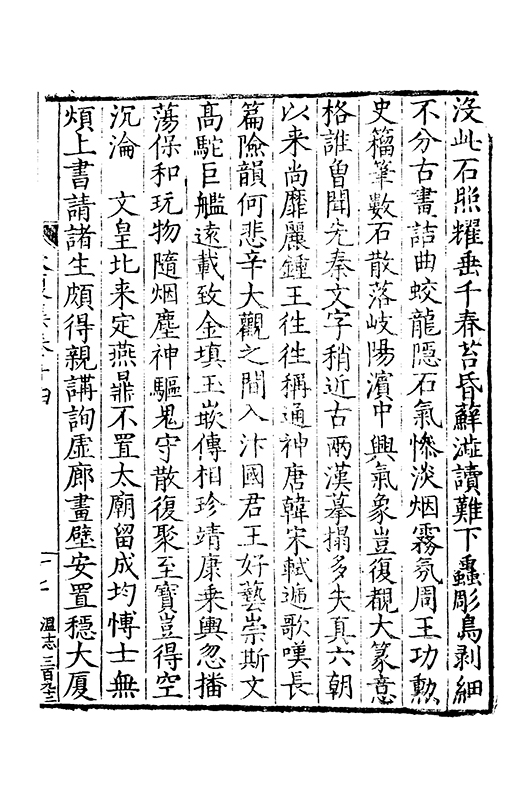 沒此石照耀垂千春苔昏蘚澁讀難下蠹彫鳥剥細
不分古畫詰曲蛟龍隱石氣慘淡烟霧氛周王功勲
史籀筆數石散落岐陽濵中興氣象豈復覩大篆意
格誰曽聞先秦文字稍近古兩漢摹搨多失真六朝
以来尚靡麗鍾王徃徃稱通神唐韓宋軾遞歌嘆長
篇險韻何悲辛大觀之間入汴國君王好藝崇斯文
髙駝巨艦遠載致金填玉嵌傳相珍靖康乗輿忽播
蕩保和玩物隨烟塵神驅鬼守散復聚至寳豈得空
沉淪　文皇北来定燕鼎不置太廟留成均博士無
煩上書請諸生頗得親講詢虛廊畫壁安置穩大厦
卷十四
溫志